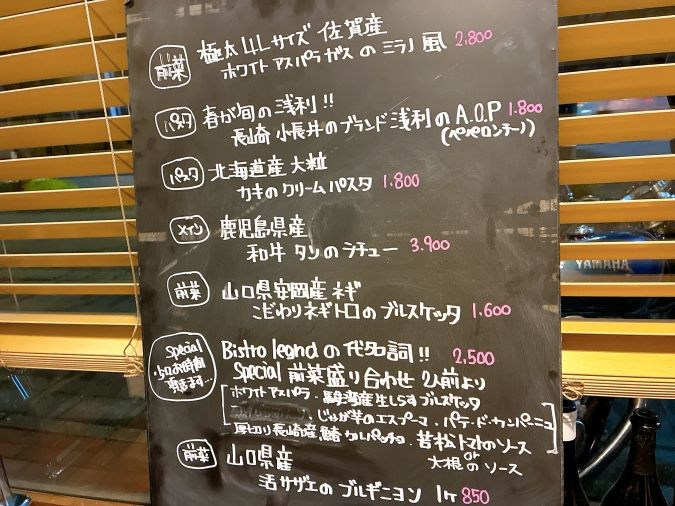 前菜
極太4Lサイズ 佐賀産
ホワイトアスパラガスのミラノ風 2,800
パスタ
春が旬の浅利!!
長崎 小長井のブランド浅利のA.O.P 1.800
(ペペロンチーノ)
パスタ
北海道産 大粒
カキのクリームパスタ 1.800
メイン
鹿児島県産
和牛 タンのラチュー 3.900
前菜
山口県安岡産 ネギ
こだわりネギトロのブルスケッタ 1,600
Special
お時間
頂きます...
Bistro leandの代名詞!! 2,500
Special 前菜盛り合わせ 2人前より
ホワイトアスパラ・駿河産生しらすブルスケッタ
じゃが芋のエスプーマ・パテ・ド・カンパーニュ
厚切り長崎産鰆カルパッチョ・若松トマトのソース
or
大根のソース
前菜
山口県産
活サザエのブルギニョン 1ヶ 850
YAMAHA